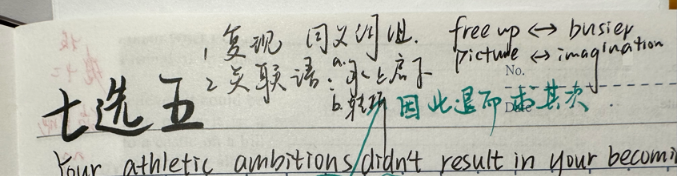 1. 复现 同义词组. free up ↔ busier
picture ↔ imagination
2 关联语: a. 承上启下
No.
七选五
b. 转折 因此退而求其次
Date
Your athletic ambitions didn't result in your becomi